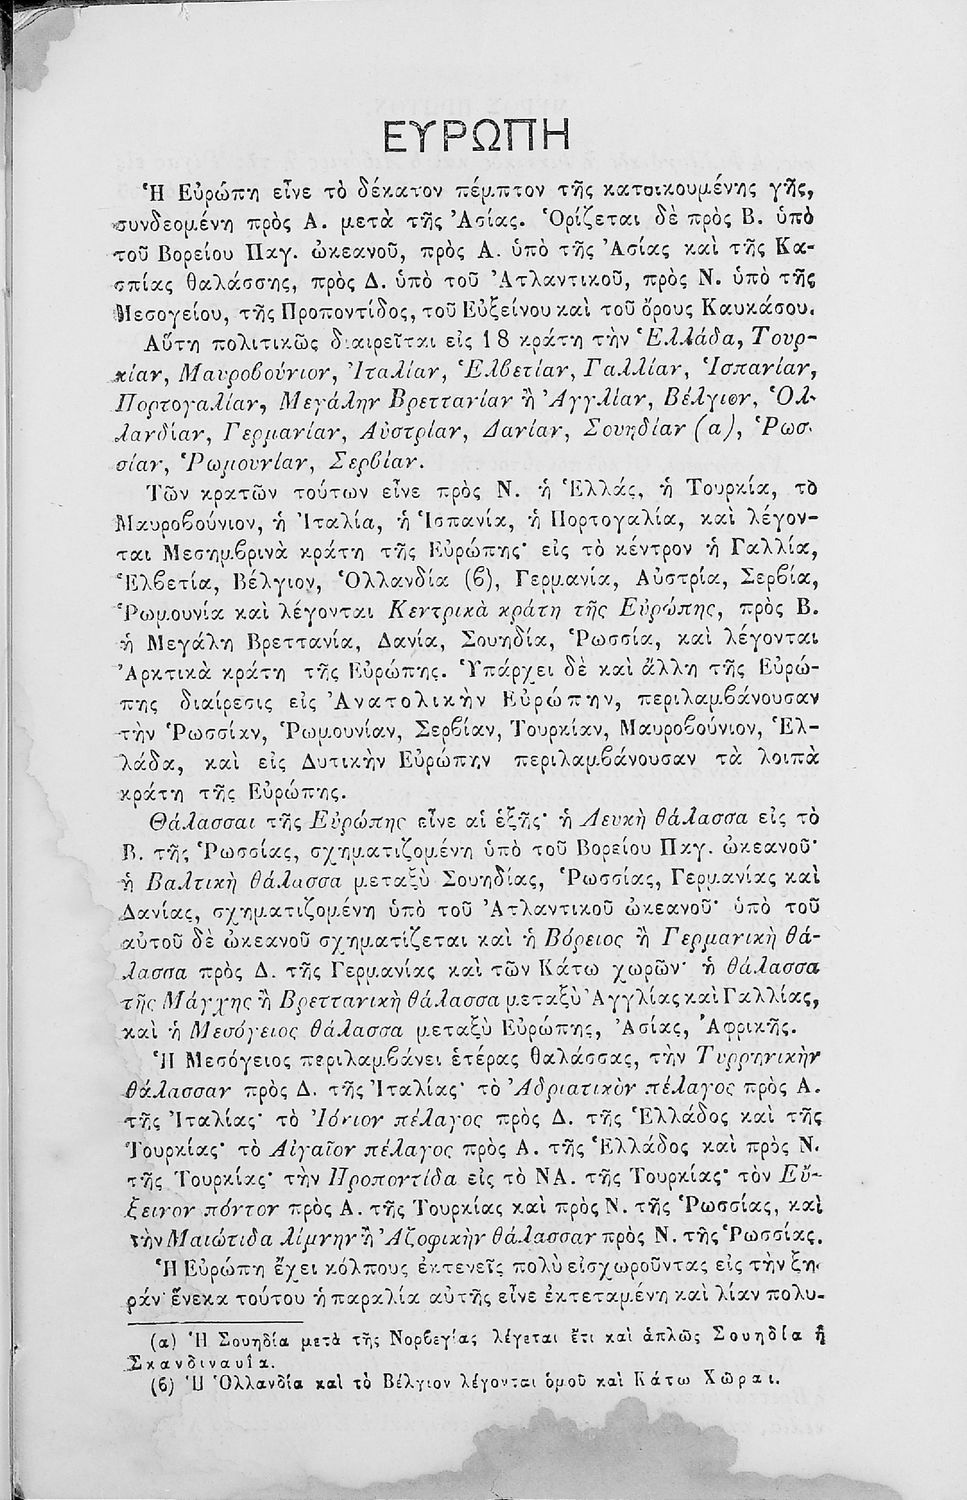 ΕΥΡΩΠΗ
Ἡ Εὐρώπη εἶνε τὸ δέκατον πέμπτον τῆς κατοικουμένης γῆς,
συνδεομένη πρὸς Α. μετὰ τῆς Ἀσίας. Ὁρίζεται δὲ πρὸς Β. ὑπὸ
τοῦ Βορείου Παγ. ὠκεανοῦ, πρὸς Α. ὑπὸ τῆς Ἀσίας καὶ τῆς Κα-
σπίας θαλάσσης, πρὸς Δ. ὑπὸ τοῦ Ἀτλαντικοῦ, πρὸς Ν. ὑπὸ τῆς
Μεσογείου, τῆς Προποντίδος, τοῦ Εὐξείνου καὶ τοῦ ὄρους Καυκάσου.
Αὕτη πολιτικῶς διαιρεῖται εἰς 18 κράτη τὴν Ἑλλάδα, Τουρ-
κίαν, Μαυροβούνιον, Ἰταλίαν, Ἑλβετίαν, Γαλλίαν, Ἱσπανίαν,
Πορτογαλίαν, Μεγάλην Βρεττανίαν ἢ Ἀγγλίαν, Βέλγιον, Ὁλ-
λανδίαν, Γερμανίαν, Αὐστρίαν, Δανίαν, Σουηδίαν (α), Ῥωσ-
σίαν, Ῥωμουνίαν, Σερβίαν.
Τῶν κρατῶν τούτων εἶνε πρὸς Ν. ἡ Ἑλλάς, ἡ Τουρκία, τὸ
Μαυροβούνιον, ἡ Ἰταλία, ἡ Ἱσπανία, ἡ Πορτογαλία, καὶ λέγον-
ται Μεσημβρινὰ κράτη τῆς Εὐρώπης· εἰς τὸ κέντρον ἡ Γαλλία,
Ἑλβετία, Βέλγιον, Ὁλλανδία (β), Γερμανία, Αὐστρία, Σερβία,
Ῥωμουνία καὶ λέγονται Κεντρικὰ κράτη τῆς Εὐρώπης, πρὸς Β.
ἡ Μεγάλη Βρεττανία, Δανία, Σουηδία, Ῥωσσία, καὶ λέγονται
Ἀρκτικὰ κράτη τῆς Εὐρώπης. Ὑπάρχει δὲ καὶ ἄλλη τῆς Εὐρώ-
πης διαίρεσις εἰς Ἀνατολικὴν Εὐρώπην, περιλαμβάνουσαν
τὴν Ῥωσσίαν, Ῥωμουνίαν, Σερβίαν, Τουρκίαν, Μαυροβούνιον, Ἑλ-
λάδα, καὶ εἰς Δυτικὴν Εὐρώπην περιλαμβάνουσαν τὰ λοιπὰ
κράτη τῆς Εὐρώπης.
Θάλασσαι τῆς Εὐρώπης εἶνε αἱ ἑξῆς· ἡ Λευκὴ θάλασσα εἰς τὸ
Β. τῆς Ῥωσσίας, σχηματιζομένη ὑπὸ τοῦ Βορείου Παγ. ὠκεανοῦ·
ἡ Βαλτικὴ θάλασσα μεταξὺ Σουηδίας, Ῥωσσίας, Γερμανίας καὶ
Δανίας, σχηματιζομένη ὑπὸ τοῦ Ἀτλαντικοῦ ὠκεανοῦ· ὑπὸ τοῦ
αὐτοῦ δὲ ὠκεανοῦ σχηματίζεται καὶ ἡ Βόρειος ἢ Γερμανικὴ θά-
λασσα πρὸς Δ. τῆς Γερμανίας καὶ τῶν Κάτω χωρῶν· ἡ θάλασσα
τῆς Μάγχης ἢ Βρεττανικὴ θάλασσα μεταξὺ Ἀγγλίας καὶ Γαλλίας,
καὶ ἡ Μεσόγειος θάλασσα μεταξὺ Εὐρώπης, Ἀσίας, Ἀφρικῆς.
Ἡ Μεσόγειος περιλαμβάνει ἑτέρας θαλάσσας, τὴν Τυρρηνικὴν
θάλασσαν πρὸς Δ. τῆς Ἰταλίας· τὸ Ἀδριατικὸν πέλαγος πρὸς Α.
τῆς Ἰταλίας· τὸ Ἰόνιον πέλαγος πρὸς Δ. τῆς Ἑλλάδος καὶ τῆς
Τουρκίας· τὸ Αἰγαῖον πέλαγος πρὸς Α. τῆς Ἑλλάδος καὶ πρὸς Ν.
τῆς Τουρκίας· τὴν Προποντίδα εἰς τὸ ΝΑ. τῆς Τουρκίας· τὸν Εὔ-
ξεινον πόντον πρὸς Α. τῆς Τουρκίας καὶ πρὸς Ν. τῆς Ῥωσσίας, καὶ
τὴν Μαιώτιδα λίμνην ἢ Ἀζοφικὴν θάλασσαν πρὸς Ν. τῆς Ῥωσσίας.
Ἡ Εὐρώπη ἔχει κόλπους ἐκτενεῖς πολὺ εἰσχωροῦντας εἰς τὴν ξη-
ράν· ἕνεκα τούτου ἡ παραλία αὐτῆς εἶνε ἐκτεταμένη καὶ λίαν πολυ-
(α) Ἡ Σουηδία μετὰ τῆς Νορβεγίας λέγεται ἔτι καὶ ἁπλῶς Σουηδία ἢ
Σκανδιναυΐα.
(β) Ἡ Ὁλλανδία καὶ τὸ Βέλγιον λέγονται ὁμοῦ καὶ Κάτω Χῶραι.